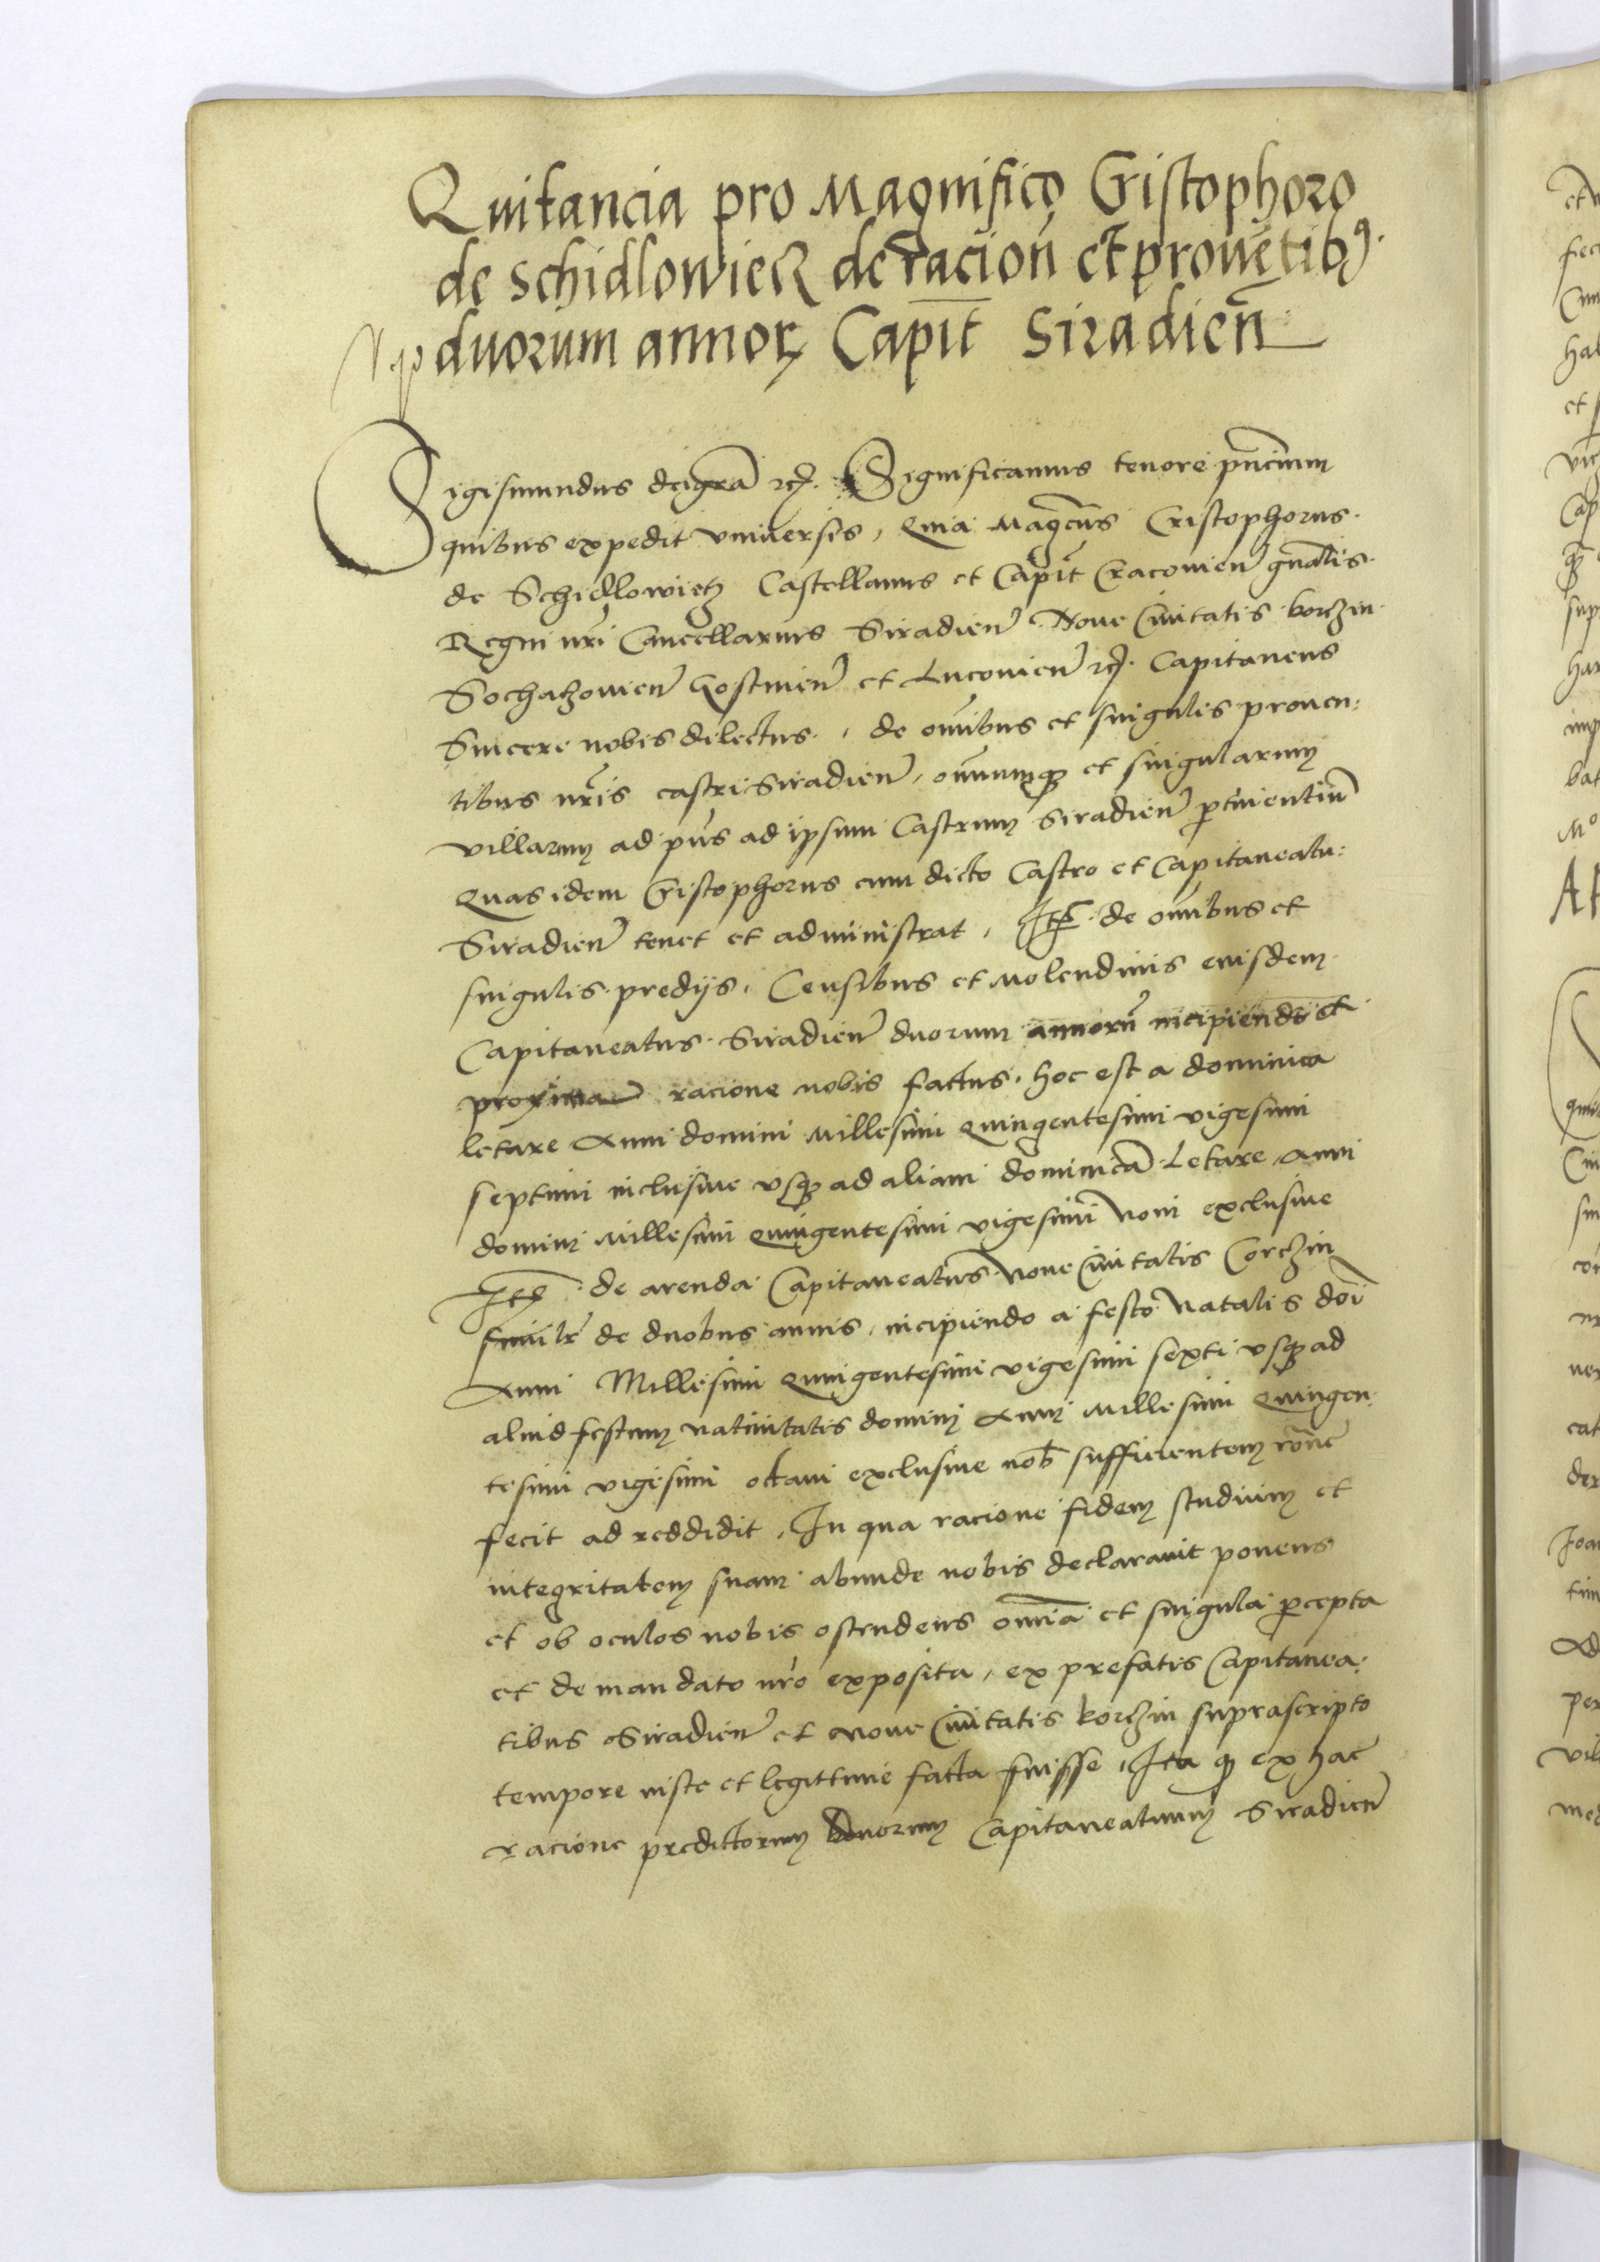 Quitancia pro Magnifico Cristophoro
de Schidlowiecz de racion et prouētib⁹
duorum annorꝝ Capit̄ Siradieñ
Sigismundus dei gr̄a rc̄. Significamus tenore pn̄cium
quibus expedit vniuersis, Quia Mag̃cus Cristophorus
de Schidlowietz Castellanus et Capit̄ Cracouieñ gn̄alis
Regni nr̄i Cancellarius Siradieñ Noue Ciuitatis korczin
Sochaczouieñ Gostinieñ et Lucouieñ rc̄. Capitaneus
Sincere nobis dilectus, de om̄ibus et singulis prouen:
tibus nr̄is castri Siradieñ, om̄iumqꝫ et singularum
villarum ad pn̄s ad ipsum Castrum Siradieñ ꝑtinentiū
Quas idem Cristophorus cum dicto Castro et Capitaneatu:
Siradieñ tenet et administrat, Itē de om̄ibus et
singulis predijs, Censibus et Molendinis eiusdem
Capitaneatus Siradieñ duorum annorū incipiendo et
proxima racione nobis factus, hoc est a dominica
letare Anni domini Millesimi Quingentesimi vigesimi
septimi inclusiue vsqꝫ ad aliam dominicā Letare Anni
domini Millesimi Quingentesimi vigesimi Noni exclusiue
Itē de arenda Capitaneatus Noue Ciuitatis Corczin
similr̄ de duobus annis, incipiendo a festo Natalis dōi
Anni Millesimi Quingentesimi vigesimi sexti vsqꝫ ad
aliud festum natiuitatis domini Anni Millesimi Quingen:
tesimi vigesimi octaui exclusiue nob̄ sufficientem rōne
fecit ad reddidit, In qua racione fidem studium et
integritatem suam abunde nobis declarauit ponens
et ob oculos nobis ostendens om̄ia et singula ꝑcepta
et de mandato nr̄o exposita, ex prefatis Capitanea:
tibus Siradieñ et Noue Ciuitatis korczin suprascripto
tempore iuste et legittime facta fuisse, Ita qꝫ ex hac
racione predictorum duorum Capitaneatuum Siradieñ